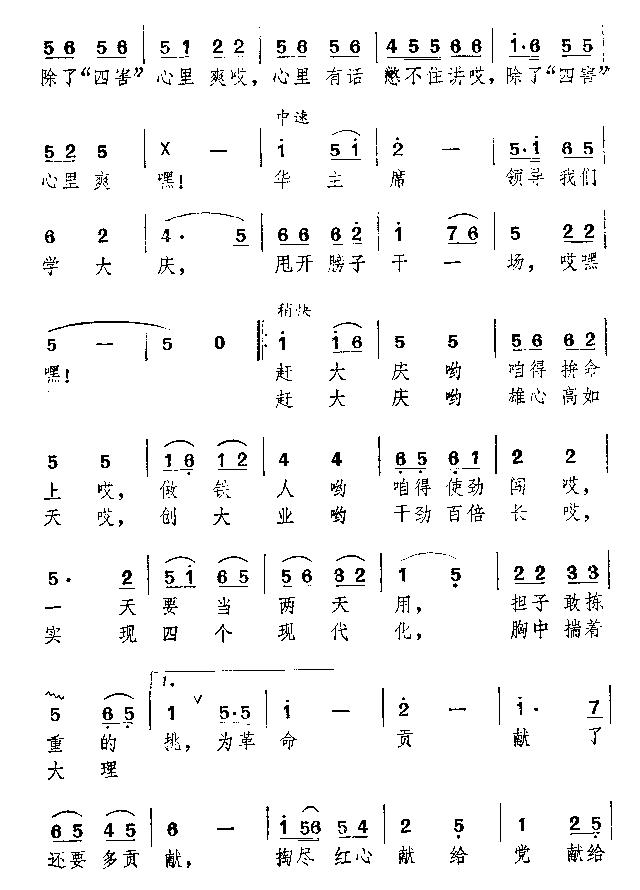 5 6 5 6 | 5 1 2 2 | 5 1 5 6 | 4 5 5 6 6 | i· 6 5 5 |
除了“四害” 心里 爽哎, 心里 有话 憋不住讲哎, 除了“四害”
中速
5 2 5 | X — | i 5 i | 2 — | 5· i 6 5 |
心里 爽 嘿! 华 主 席 领导 我们
6 2 | 4· 5 | 6 6 6 2 | i 7 6 | 5 2 2 |
学 大 庆, 甩开 膀子 干 一 场, 哎嘿
稍快
5 — | 5 0 |: i i 6 | 5 5 | 5 6 6 2 |
嘿! 赶 大 庆 哟 咱得 拚命
赶 大 庆 哟 雄心 高如
5 5 | 1 6 1 2 | 4 4 | 6 5 6 1 | 2 2 |
上 哎, 做 铁 人 哟 咱得 使劲 闯 哎,
天 哎, 创 大 业 哟 干劲 百倍 长 哎,
5· 2 | 5 i 6 5 | 5 6 3 2 | 1 5 | 2 2 3 3 |
一 天 要 当 两 天 用, 担子 敢拣
实 现 四 个 现 代 化, 胸中 揣着
1.
5 6 5 | 1 ∨ 5·5 | i — | 2 — | i· 7 |
重 的 挑, 为革 命 贡 献 了
大 理
6 5 4 5 | 6 — | i 5 6 5 4 | 2 5 | 1 2 5 |
还要 多贡 献, 掏尽 红心 献 给 党 献给